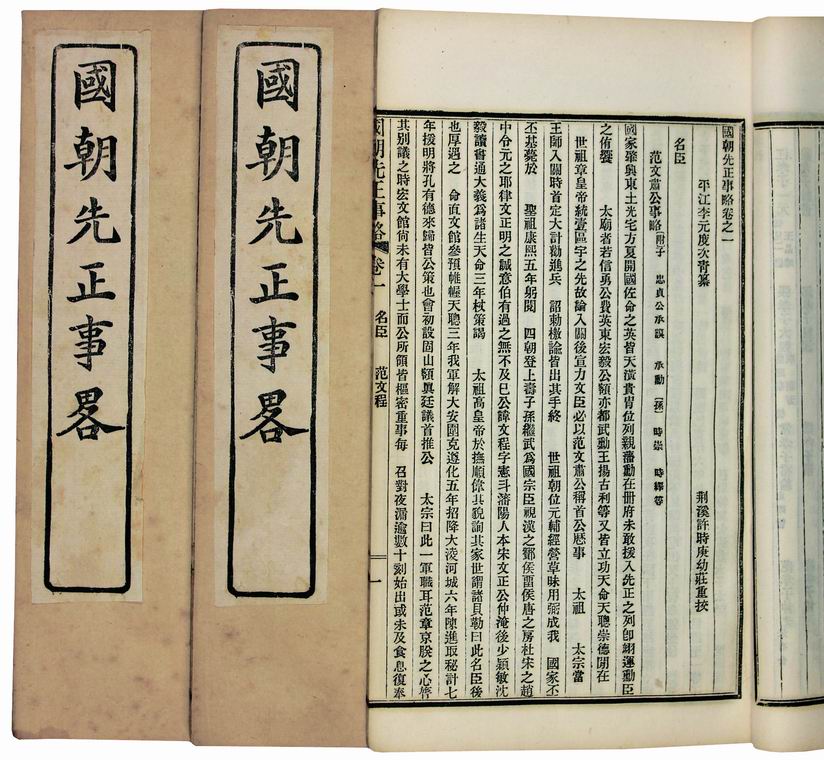 國朝先正事畧
國朝先正事畧
國朝先正事略卷之一
平江李元度次青纂　荆溪許時庚幼莊重挍
名臣
范文肅公事略(附子　忠貞公承謨　承勳　(孫)　時崇　時繹等
國家肇興東土光宅方夏開國佐命之英皆天潢貴胄位列親藩勳在册府未敢援入先正之列卽翊運勳臣
之侑饗　太廟者若信勇公費英東宏毅公額亦都武勳王揚古利等又皆立功天命天聰崇德閒在
世祖章皇帝統壹區宇之先故論入關後宣力文臣必以范文肅公稱首公歷事　太祖　太宗當
王師入關時首定大計勸進兵　詔勅檄諭皆出其手終　世祖朝位元輔經營草昧用弼成我　國家丕
丕基薨於　聖祖康熙五年躬閱　四朝登上壽子孫繼武爲國宗臣視漢之酇侯畱侯唐之房杜宋之趙
中令元之耶律文正明之誠意伯有過之無不及巳公諱文程字憲斗瀋陽人本宋文正公仲淹後少穎敏沈
毅讀書通大義爲諸生天命三年杖策謁　太祖高皇帝於撫順偉其貌詢其家世謂諸貝勒曰此名臣後
也厚遇之　命直文館參預帷幄天聰三年我軍解大安圍克遵化五年招降大淩河城六年陳進取秘計七
年援明將孔有德來歸皆公策也會初設固山額眞廷議首推公　太宗曰此一軍職耳范章京朕之心膂
其别議之時宏文館尙未有大學士而公所領皆樞密重事每　召對夜漏逾數十刻始出或未及食息復奉
國朝先正事略　卷一　名臣　范文程　一